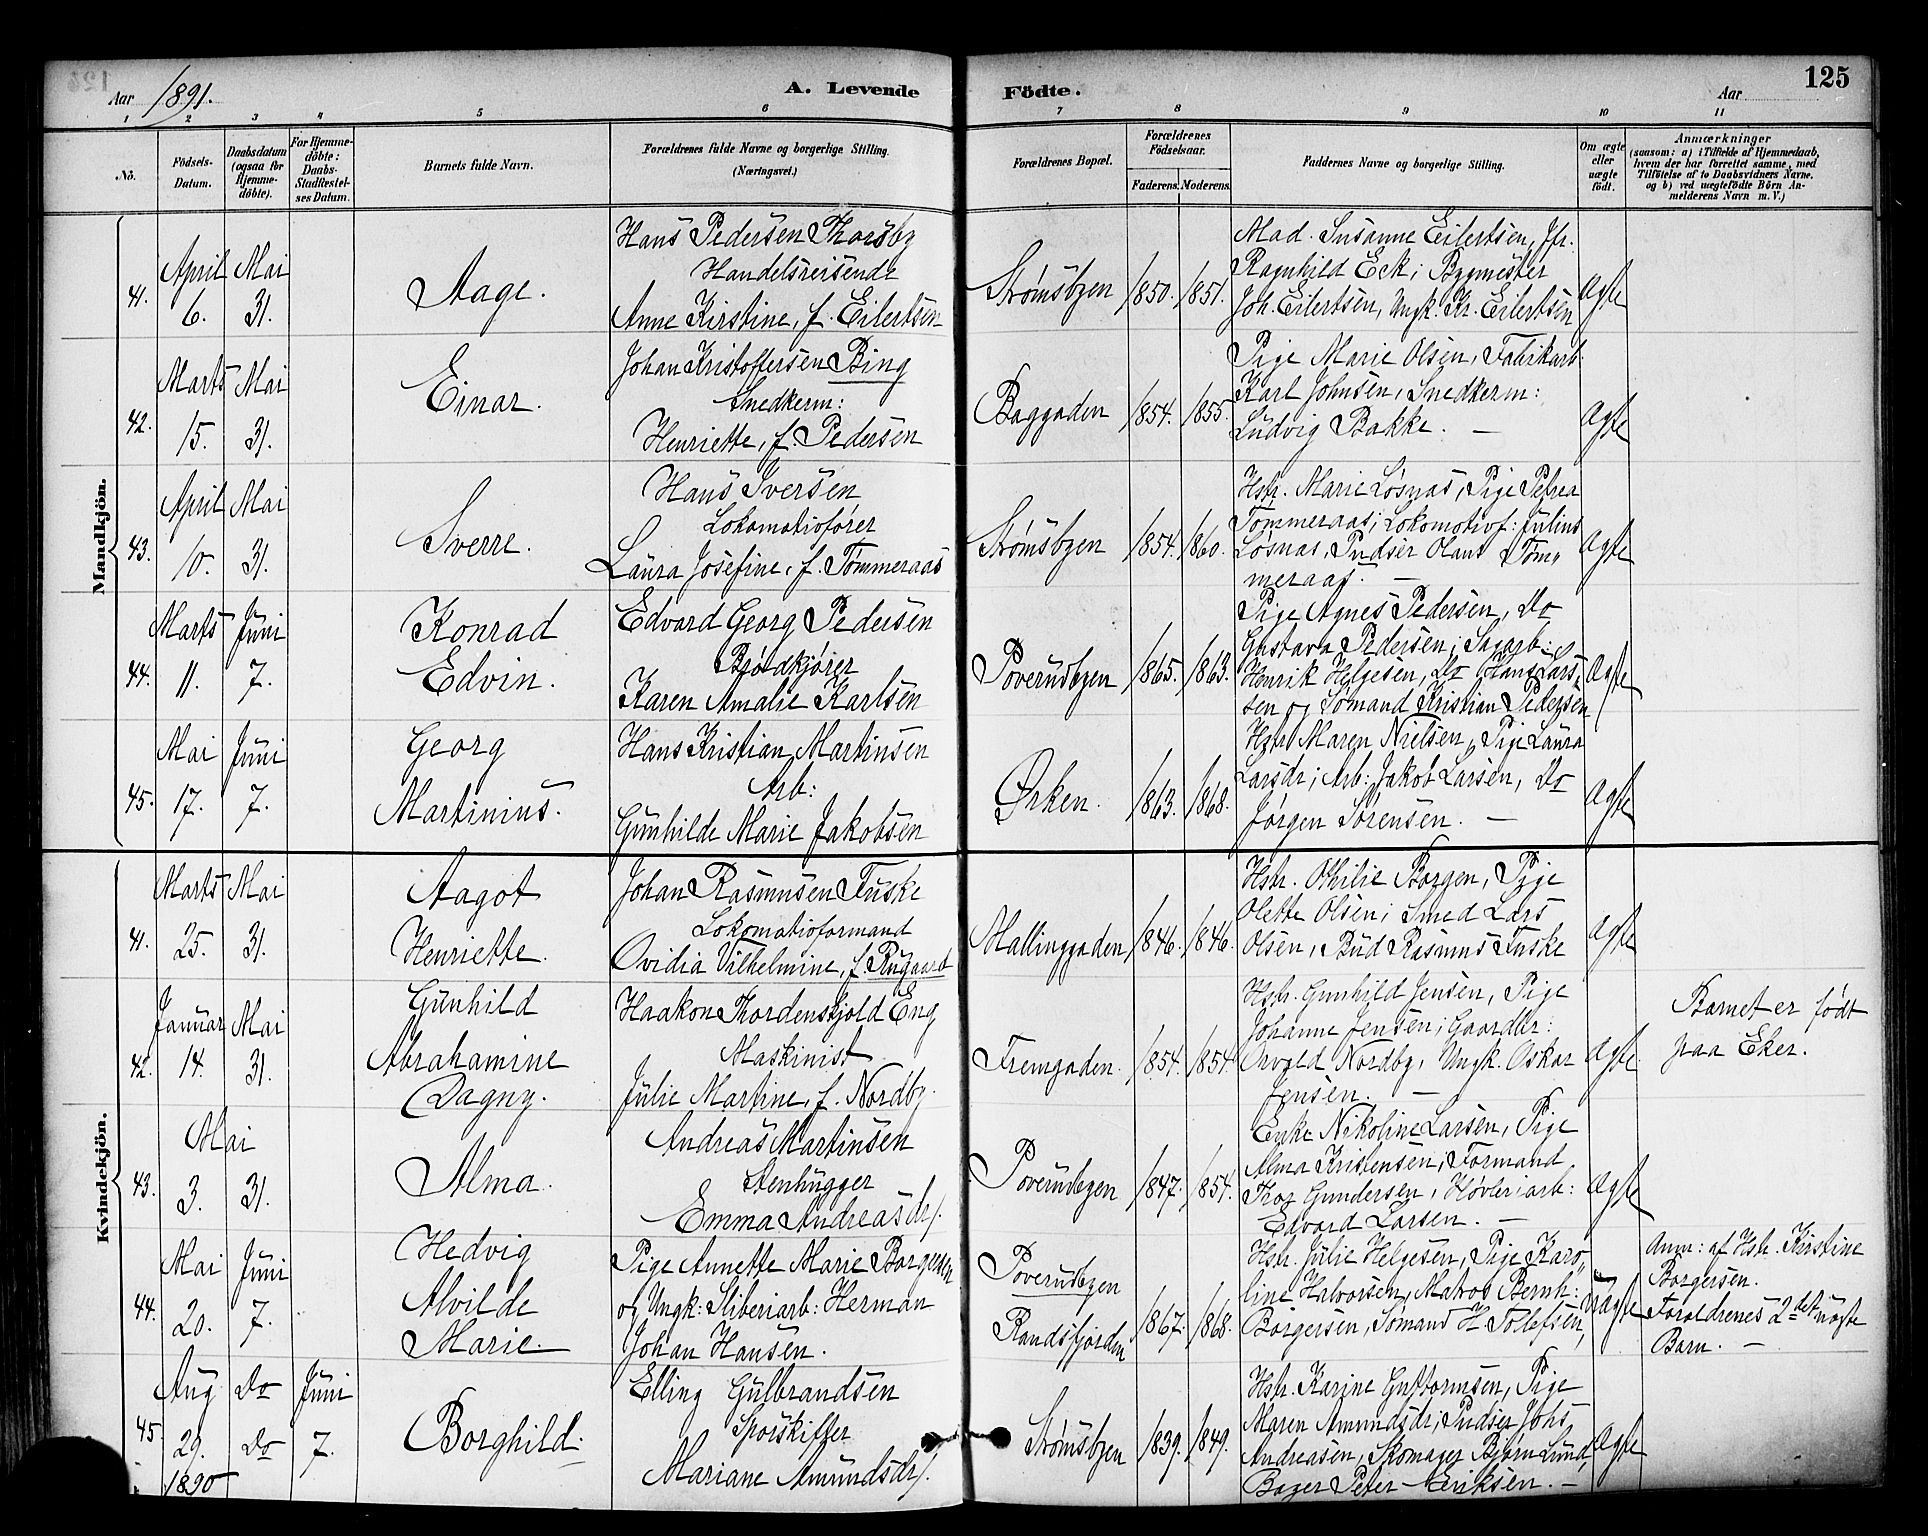 Aar 1891.
A. Levende Födte.
Aar
125
1 2 3 4 5 6 7 8 9 10 11
No.
Födsels-Datum.
Daabsdatum (ogsaa for Hjemme-döbte).
For Hjemme-döbte: Daabs-Stadfæstel-ses Datum.
Barnets fulde Navn.
Forældrenes fulde Navne og borgerlige Stilling.
(Næringsvei.)
Forældrenes Bopæl.
Forældrenes Födselsaar.
Faderens. Moderens.
Faddernes Navne og borgerlige Stilling.
Om ægte eller uægte födt.
Anmærkninger
(saasom: a) i Tilfælde af Hjemmedaab,
hvem der har forrettet samme, med
Tilföielse af to Daabsvidners Navne.
og b) ved uægtefödte Börn An-
melderens Navn m. V.)
Mandkjön.
41.
April 6.
Mai 31.
Aage.
Hans Pedersen Thorsby
Handelsreisende
Anne Kirstine, f. Eilertsen
Strømsbyen
1850. 1851.
Mad. Susanne Eilertsen, Jfr.
Ragnhild Eek; Bygmester
Joh. Eilertsen, Ungk. Kr. Eilertsen
Ægte
42.
Marts 15.
Mai 31.
Einar.
Johan Kristoffersen Bing
Snedkerm:
Henriette, f. Pedersen
Baggaden
1854. 1855.
Pige Marie Olsen, Fabrikarb.
Karl Johnsen, Snedkerm:
Ludvig Bakke. —
Ægte
43.
April 10.
Mai 31.
Sverre.
Hans Iversen
Lokomotivfører
Laura Josefine, f. Tømmeraas
Strømsbyen
1854. 1860.
Hstr. Marie Løsnas, Pige Petrea
Tømmeraas; Lokomotivf: Julius
Løsnas, Pudser Olaus Tøm„
meraas. —
Ægte
44.
Marts 11.
Juni 7.
Konrad
Edvin.
Edvard Georg Pedersen
Brødkjører
Karen Amalie Karlsen
Poverudbyen
1865. 1863.
Pige Agnes Pedersen, Do
Gustava Pedersen; Sagarb:
Henrik Helgesen, Do Hans Lars„
sen og Sømand Kristian Pedersen
Ægte
45.
Mai 17.
Juni 7.
Georg
Martinius.
Hans Kristian Martinsen
Arb:
Gunhilde Marie Jakobsen
Ørken.
1863. 1868.
Hstr. Maren Nielsen, Pige Laura
Larsdr; Arb: Jakob Larsen, Do
Jørgen Sørensen. —
Ægte
Kvindekjön.
41.
Marts 25.
Mai 31.
Aagot
Henriette.
Johan Rasmusen Fuske
Lokomotivformand
Ovidia Vilhelmine, f. Rugaard
Hallinggaden
1846. 1846.
Hstr. Othilie Borgen, Pige
Olette Olsen; Smed Lars
Olsen, Bud Rasmus Fuske
Ægte
42.
Januar 14.
Mai 31.
Gunhild
Abrahamine
Dagny.
Haakon Thordenskjold Eng
Maskinist
Julie Martine, f. Nordby.
Fremgaden.
1854. 1854.
Hstr. Gunhild Jensen, Pige
Johanne Jensen; Gaardbr:
Orvald Nordby, Ungk. Oskar
Jensen. —
Ægte.
Barnet er født
paa Eker.
43.
Mai 3. 31.
Alma.
Andreas Martinsen
Stenhugger
Emma Andreasdr.
Poverudbyen
1847. 1854.
Enke Nikoline Larsen, Pige
Alma Kristensen; Formand
Thor Gundersen, Høvleriarb:
Edvard Larsen. —
Ægte
44.
Mai 20.
Juni 7.
Hedvig
Alvilde
Marie.
Pige Annette Marie Borgersen
og Ungk: Sliberiarb: Herman
Johan Hansen.
Poverudbyen
Randsfjorden
1867. 1868.
Hstr. Julie Helgesen, Pige Karo„
line Halvorsen, Matros Bernh:
Borgersen, Sømand H. Tollefsen,
Uægte
Anm: af Hstr. Kristine
Borgersen.
Forældrenes 2det uægte
Barn. —
45.
Aug 29. 1890
Do Do
Juni 7.
Borghild.
Elling Gulbrandsen
Sporskifter
Mariane Amundsdr.
Strømsbyen
1839. 1849.
Hstr. Karine Guttormsen, Pige
Maren Amundsdr; Pudser Johs
Andreasen, Skomager Bjørn Lund,
Bager Peter Eriksen. —
Ægte